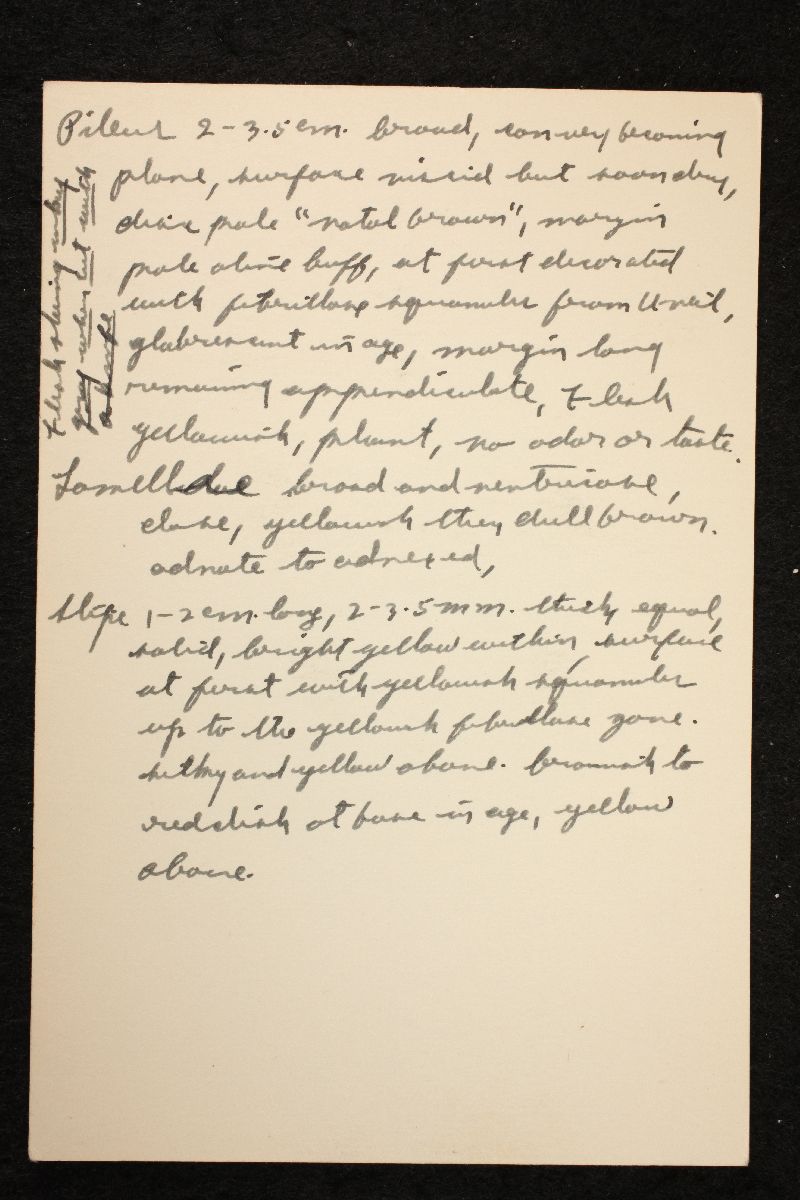 Pileus 2-3.5 cm. broad, convex becoming
plane, surface viscid but soon dry,
disc pale "natal brown", margin
pale olive buff, at first decorated
with fibrillose squamules from veil,
glabrescent in age, margin long
remaining appendiculate, Flesh
yellowish, pliant, no odor or taste.
Flesh
gray when cut with
a knife
Lamellae broad and ventricose,
close, yellowish then dull brown.
adnate to adnexed,
Stipe 1-2 cm. long, 2-3.5 mm. thick, equal,
solid, bright yellow within, surface
at first with yellowish squamules
up to the yellowish fibrillose zone.
silky and yellow above. brownish to
reddish at base in age, yellow
above.